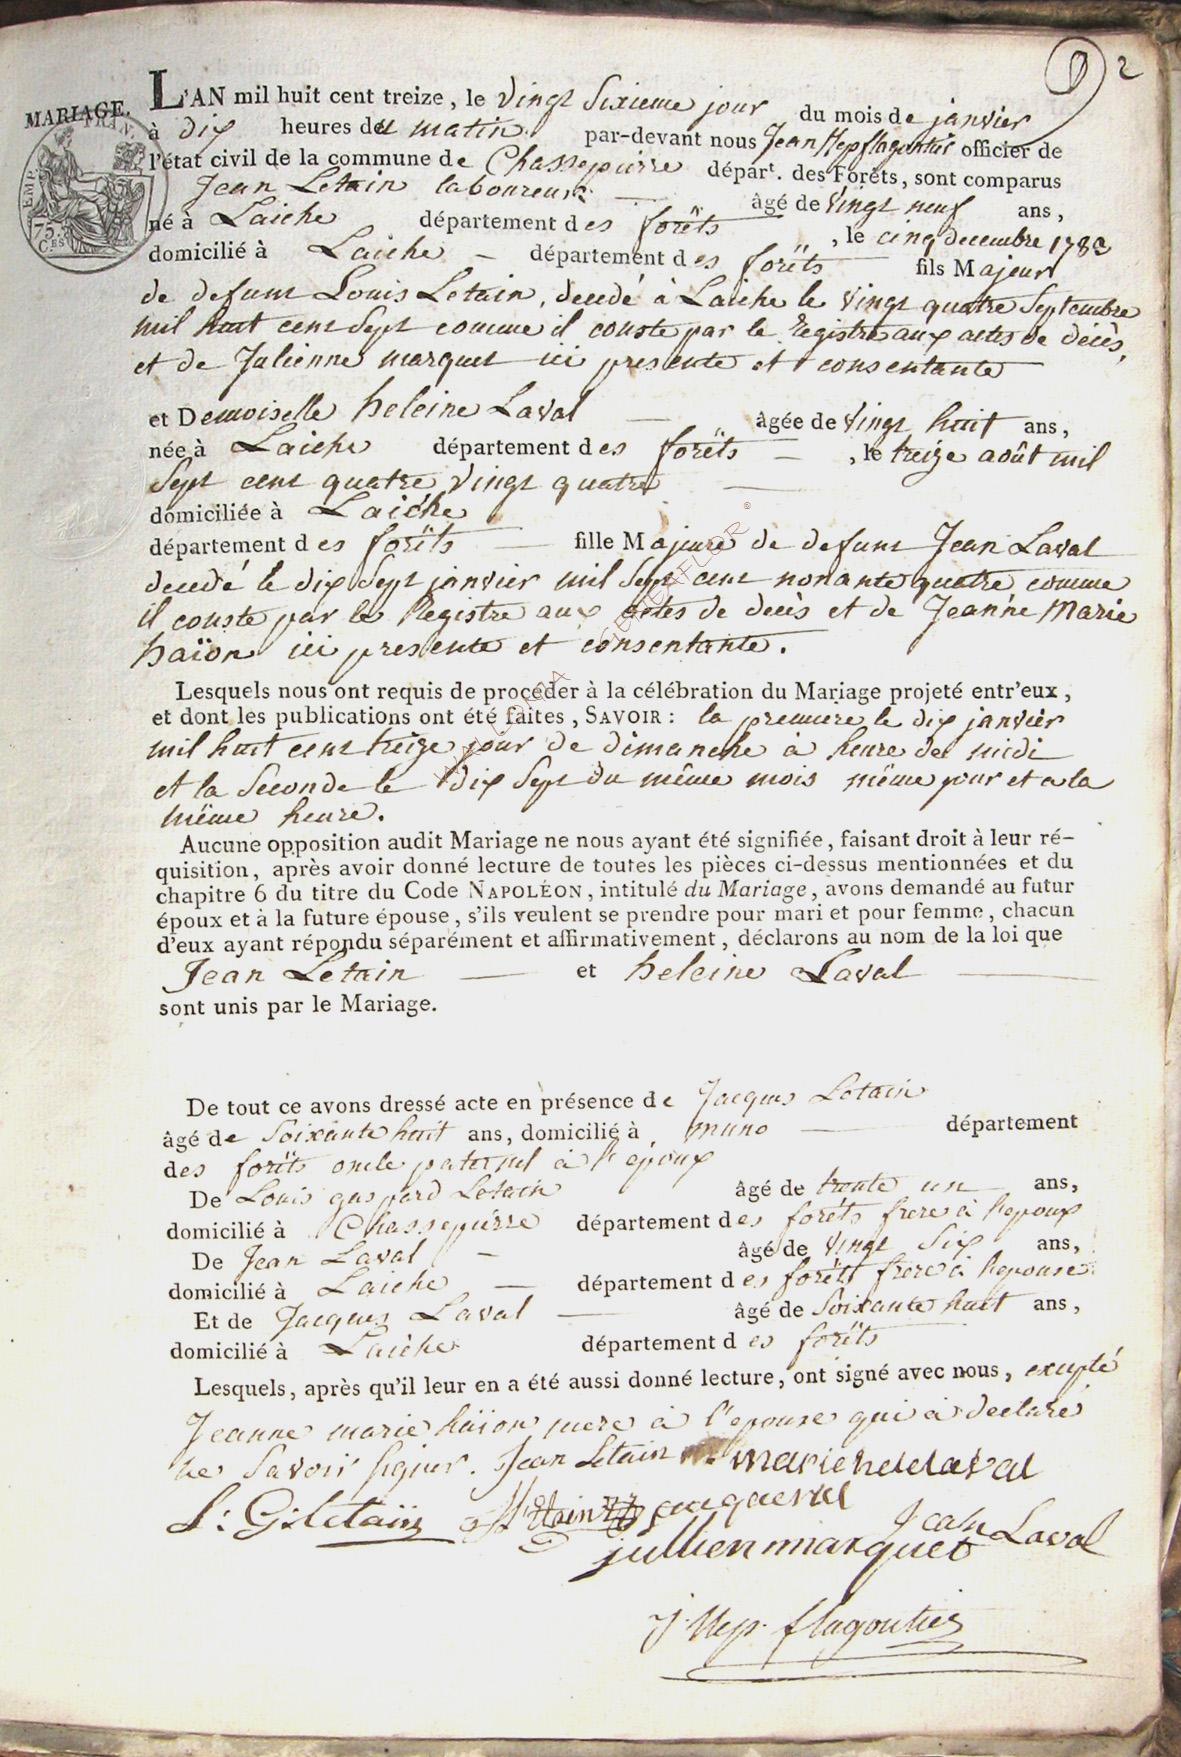 2
MARIAGE.
L'AN mil huit cent treize, le vingt Sixieme jour du mois de janvier
à dix heures du matin par-devant nous Jean Nep flagontier officier de
l'état civil de la commune de Chassepierre départ. des Forêts, sont comparus
Jean Letain laboureur âgé de vingt neuf ans,
né à Laiche département des forêts, le cinq decembre 1783
domicilié à Laiche département des forêts fils Majeur
de defunt Louis Letain, decedé à Laiche le vingt quatre Septembre
mil huit cent Sept comme il conste par le Registre aux actes de décès,
et de Julienne marquet ici presente et consentante
et Demoiselle heleine Laval âgée de vingt huit ans,
née à Laiche département des forêts, le treize août mil
Sept cent quatre vingt quatre
domiciliée à Laiche
département des forêts fille Majeure de defunt Jean Laval
decedé le dix Sept janvier mil Sept cent nonante quatre comme
il conste par le Registre aux actes de decès et de Jeanne Marie
haïon ici presente et consentante.
Lesquels nous ont requis de procéder à la célébration du Mariage projeté entr'eux,
et dont les publications ont été faites, SAVOIR : la premiere le dix janvier
mil huit cent treize jour de dimanche à heure de midi
et la Seconde le dix Sept du même mois même jour et a la
même heure.
Aucune opposition audit Mariage ne nous ayant été signifiée, faisant droit à leur ré-
quisition, après avoir donné lecture de toutes les pièces ci-dessus mentionnées et du
chapitre 6 du titre du Code NAPOLÉON, intitulé du Mariage, avons demandé au futur
époux et à la future épouse, s'ils veulent se prendre pour mari et pour femme, chacun
d'eux ayant répondu séparément et affirmativement, déclarons au nom de la loi que
Jean Letain et heleine Laval
sont unis par le Mariage.
De tout ce avons dressé acte en présence de Jacques Letain
âgé de Soixante huit ans, domicilié à muno département
des forêts oncle paternel à l'epoux
De Louis gaspard Letain âgé de trente un ans,
domicilié à Chassepierre département des forêts frere à l'epoux
De Jean Laval âgé de vingt Six ans,
domicilié à Laiche département des forêts frere à l'epouse
Et de Jacques Laval âgé de Soixante huit ans,
domicilié à Laiche département des forêts
Lesquels, après qu'il leur en a été aussi donné lecture, ont signé avec nous, excepté
Jeanne marie haïon mere à l'epouse qui à declaré
ne Savoir signer. Jean Letain marie hele laval
L: G: letain
Jean Laval
jullien marquet
J. Nep. flagontier